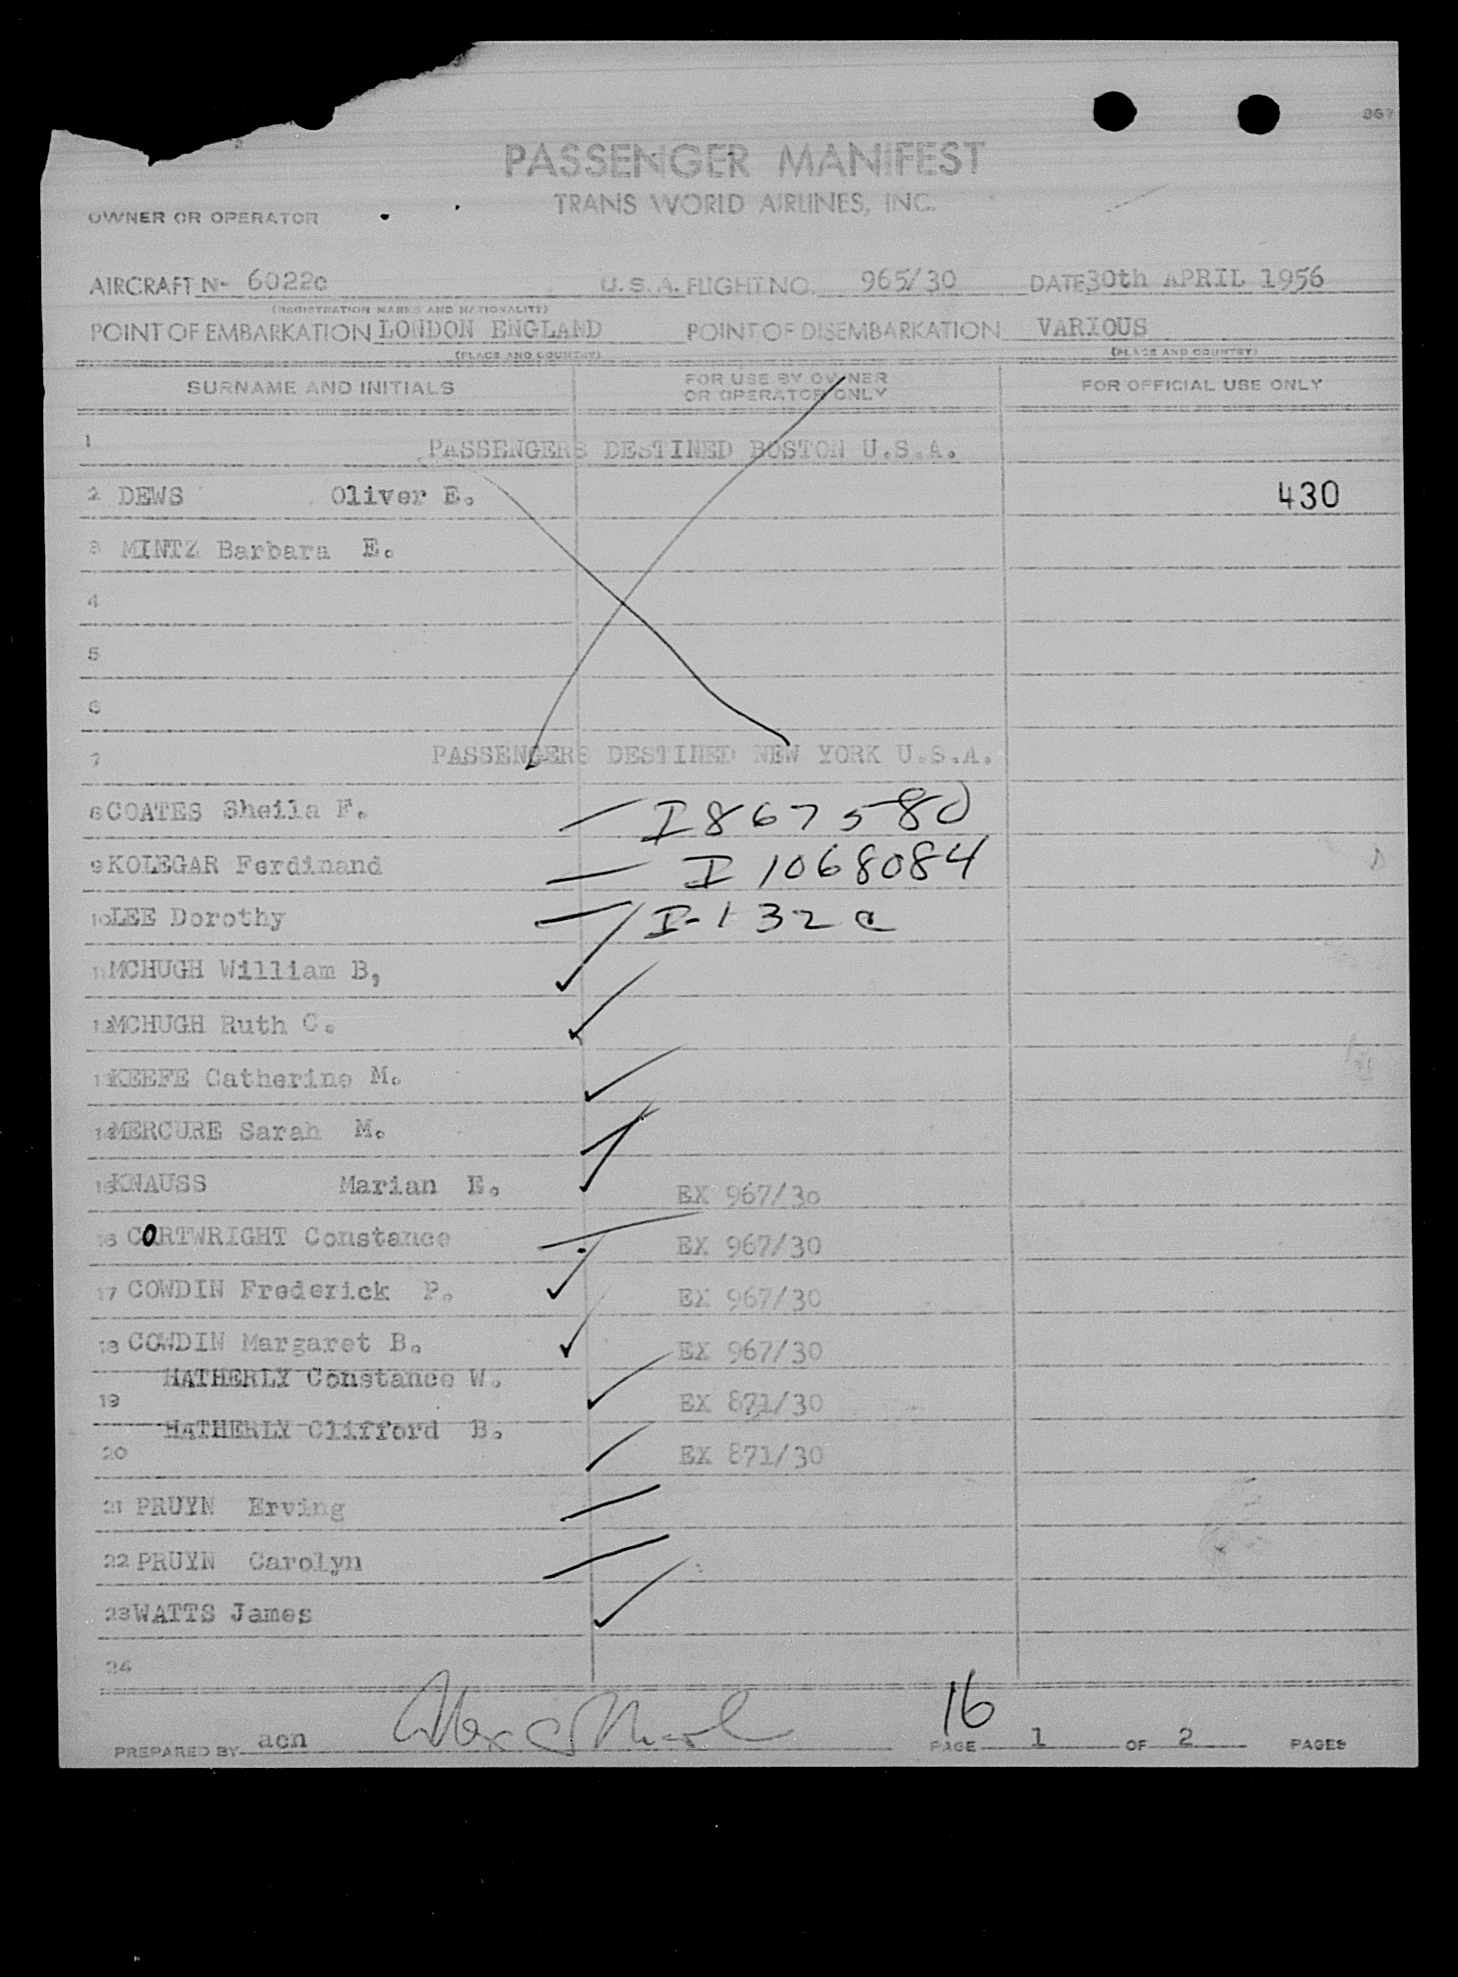 367
PASSENGER MANIFEST
TRANS WORLD AIRLINES, INC.
OWNER OR OPERATOR
AIRCRAFT N- 6022c U.S.A. FLIGHT NO. 965/30 DATE 30th APRIL 1956
(REGISTRATION MARKS AND NATIONALITY)
POINT OF EMBARKATION LONDON ENGLAND POINT OF DISEMBARKATION VARIOUS
(PLACE AND COUNTRY) (PLACE AND COUNTRY)
SURNAME AND INITIALS FOR USE BY OWNER OR OPERATOR ONLY FOR OFFICIAL USE ONLY
1 PASSENGERS DESTINED BOSTON U.S.A.
2 DEWS Oliver E. 430
3 MINTZ Barbara E.
4
5
6
7 PASSENGERS DESTINED NEW YORK U.S.A.
8 COATES Sheila F. I 867580
9 KOLEGAR Ferdinand I 1068084
10 LEE Dorothy I-132 a
11 MCHUGH William B,
12 MCHUGH Ruth C.
13 KEEFE Catherine M.
14 MERCURE Sarah M.
15 KNAUSS Marian E. EX 967/30
16 CORTWRIGHT Constance EX 967/30
17 COWDIN Frederick P. EX 967/30
18 COWDIN Margaret B. EX 967/30
19 HATHERLY Constance W. EX 871/30
20 HATHERLY Clifford B. EX 871/30
21 PRUYN Erving
22 PRUYN Carolyn
23 WATTS James
24
16
PREPARED BY acn PAGE 1 OF 2 PAGES